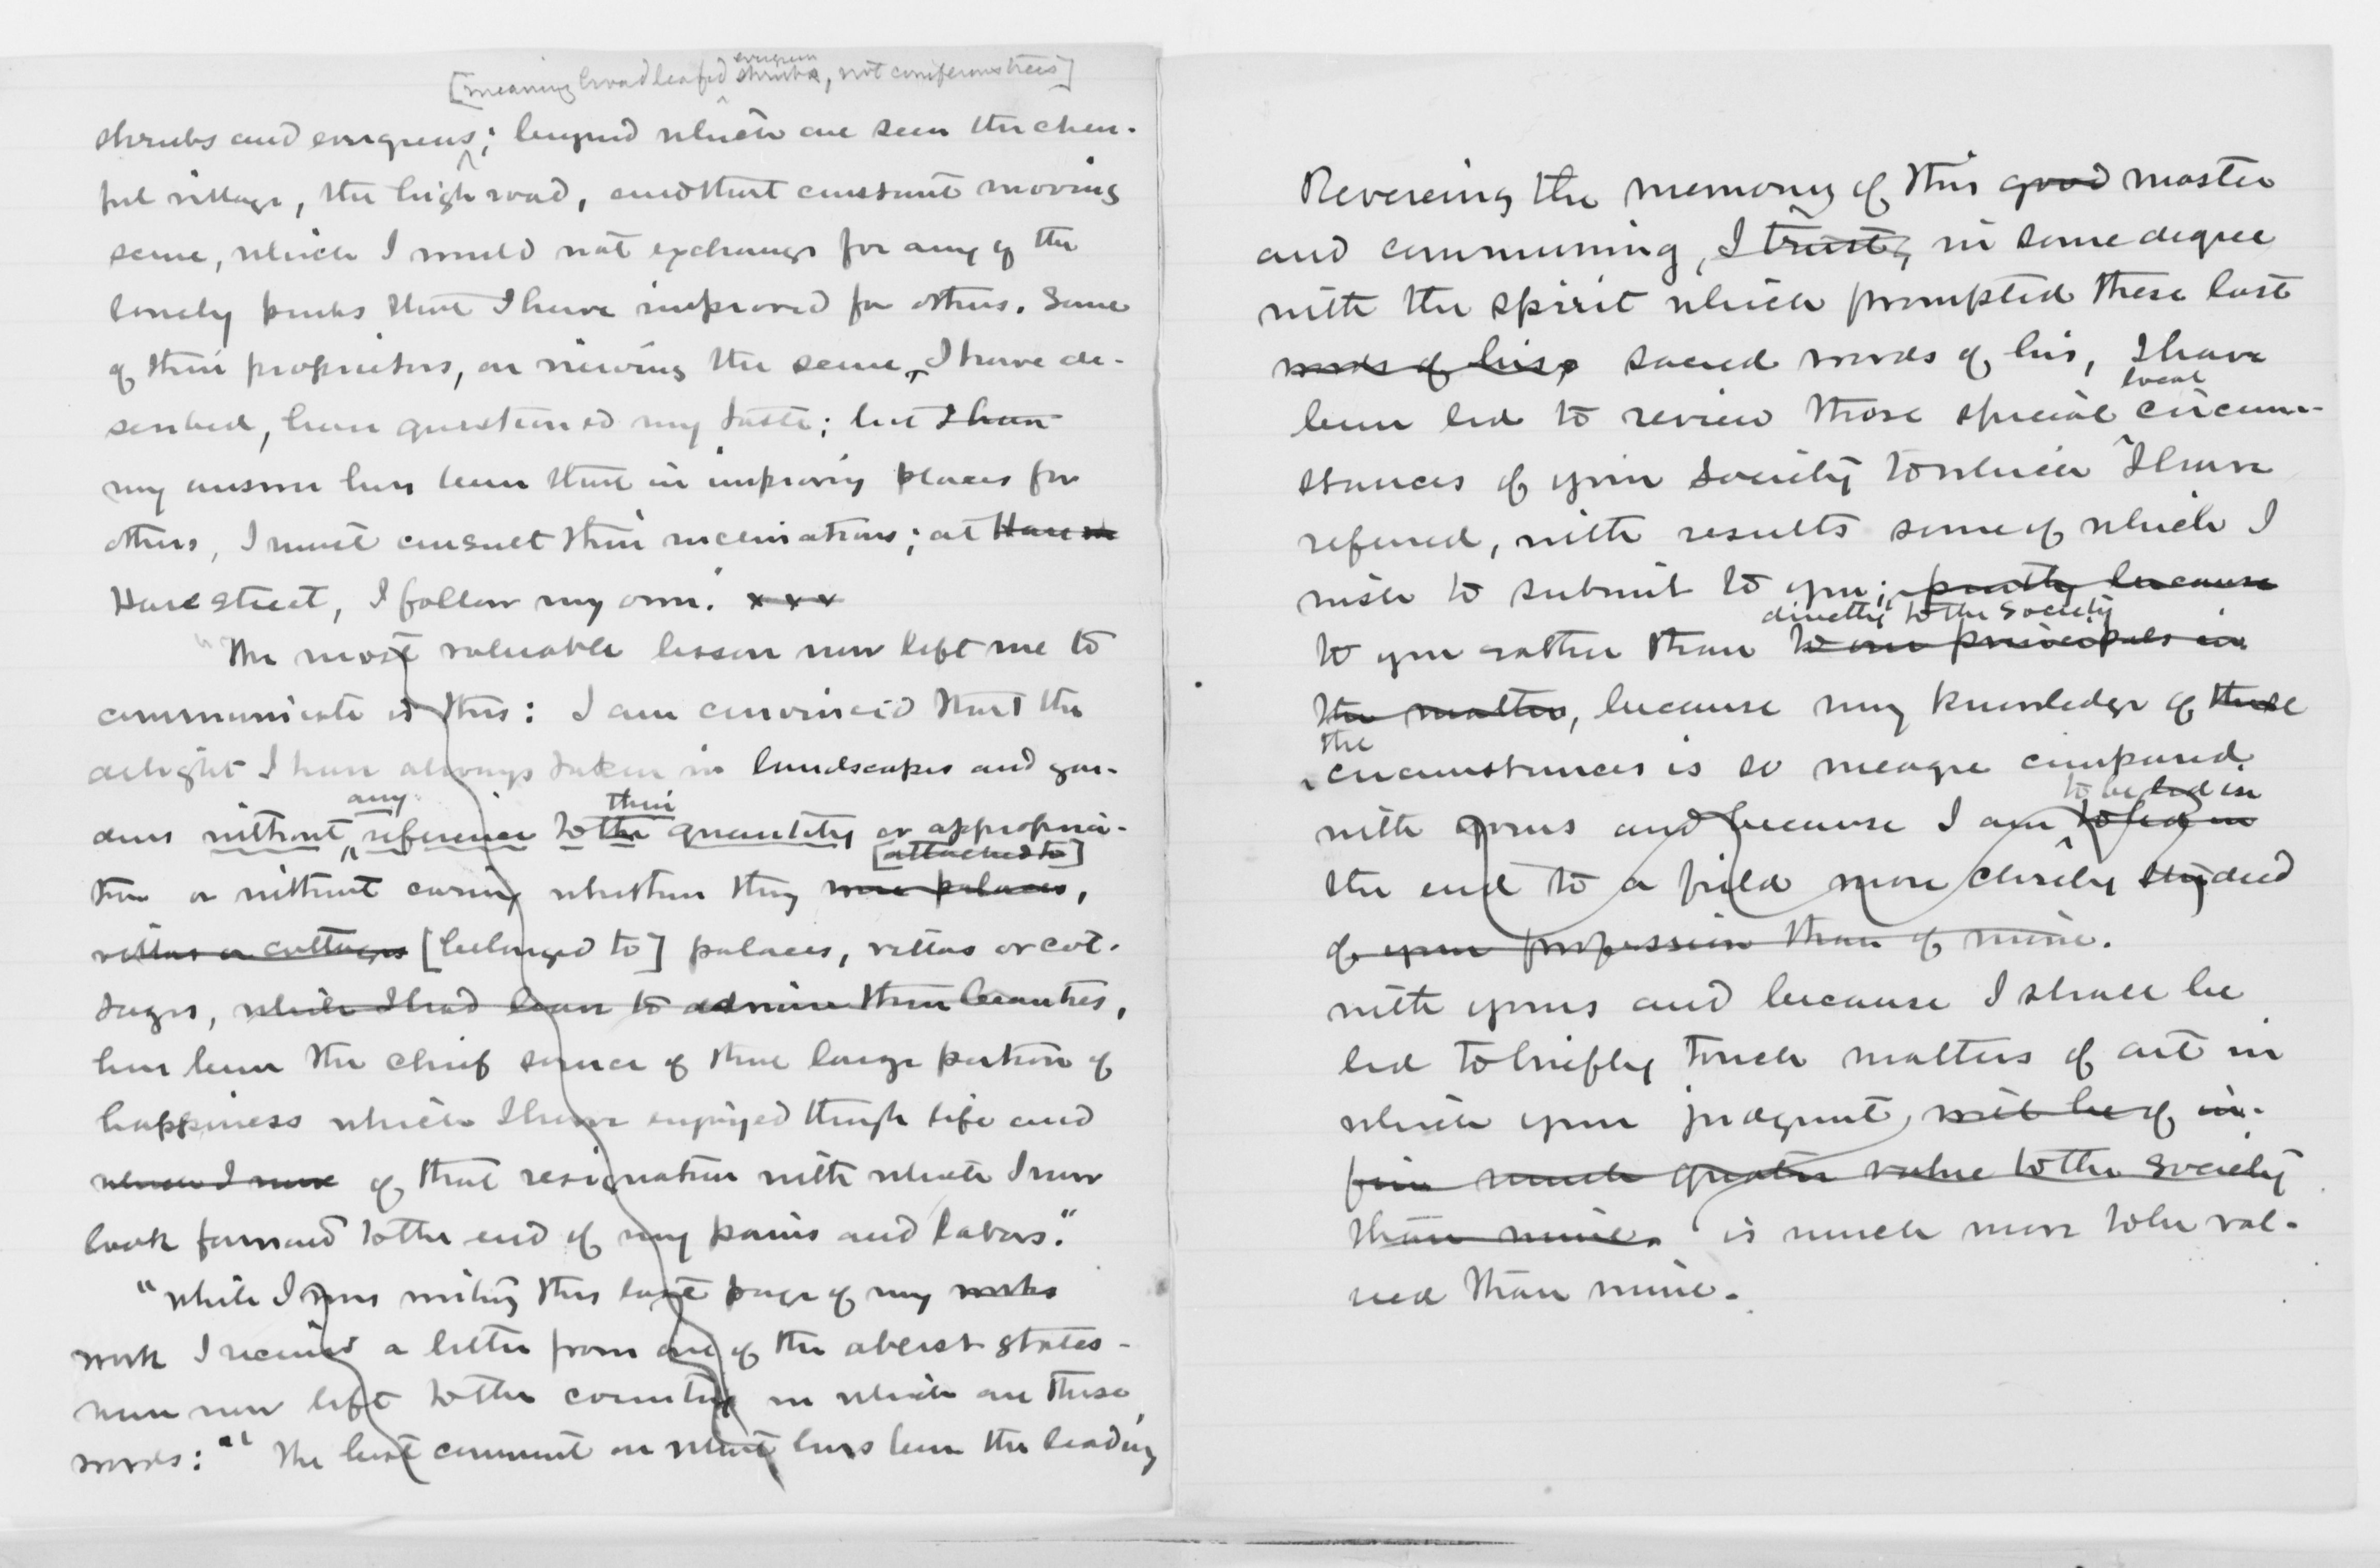 [meaning broad leafed evergreen shrubs, not coniferous trees]
shrubs and evergreens; beyond which are seen the cheer-
ful village, the high road, and that constant moving
scene, which I would not exchange for any of the
lonely parks that I have improved for others. Some
of their proprietors, on viewing the scene, I have de-
scribed, have questioned my taste; but I have
my answer has been that in improving places for
others, I must consult their inclinations; at Hare
Hare Street, I follow my own. x x x
"The most valuable lesson now left me to
communicate is this: I am convinced that the
delight I have always taken in landscapes and gar-
any their
dens without reference to the quantity or appropria-
[attached to]
tion or without caring whether they were palaces,
villas or cottages [belonged to] palaces, villas or cot-
tages, while I had leave to admire their beauties,
has been the chief source of that large portion of
happiness which I have enjoyed through life and
of that resignation with which I now
look forward to the end of my pains and labors."
"While I was writing this last page of my works
work I received a letter from one of the ablest states-
men now left to the country in which are these
words: "' The best comment on what has been the leading
Revereing the memory of this good master
and communing, I trust, in some degree
with the spirit which prompted these last
words of his, sacred words of his, I have
local
been led to review those special circum-
stances of your Society to which I have
referred, with results some of which I
wish to submit to you; partly because
directly to the Society
to you rather than to our principals in
the matter, because my knowledge of these
the
circumstances is so meagre compared
to be led in
with yours and because I am to led in
the end to a field more closely studied
of your profession than of mine.
with yours and because I shall be
led to briefly touch matters of art in
which your judgment will be of in-
fin much greater value to the Society
than mine. is much more to be val-
ued than mine.